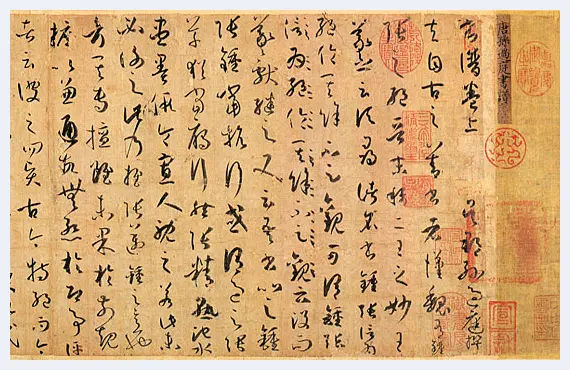 唐孫過庭書譜
書譜卷上 吳郡孫過庭撰
夫自古之善書者漢魏有鍾
張之絕晉末稱二王之妙王
羲之云頃尋諸名書鍾張信為
絕倫其餘不足觀可謂鍾張
為絕倫其餘不足觀云沒而
羲獻繼之又云吾書比之鍾
張鍾當抗行或謂過之張
草猶當雁行然張精熟池水
盡墨假令寡人耽之若此未
必謝之此乃推張邁鍾之意也
考其專擅雖未果於前規
摭以兼通故無慚於即事評
者云彼之四賢古今特絕而今